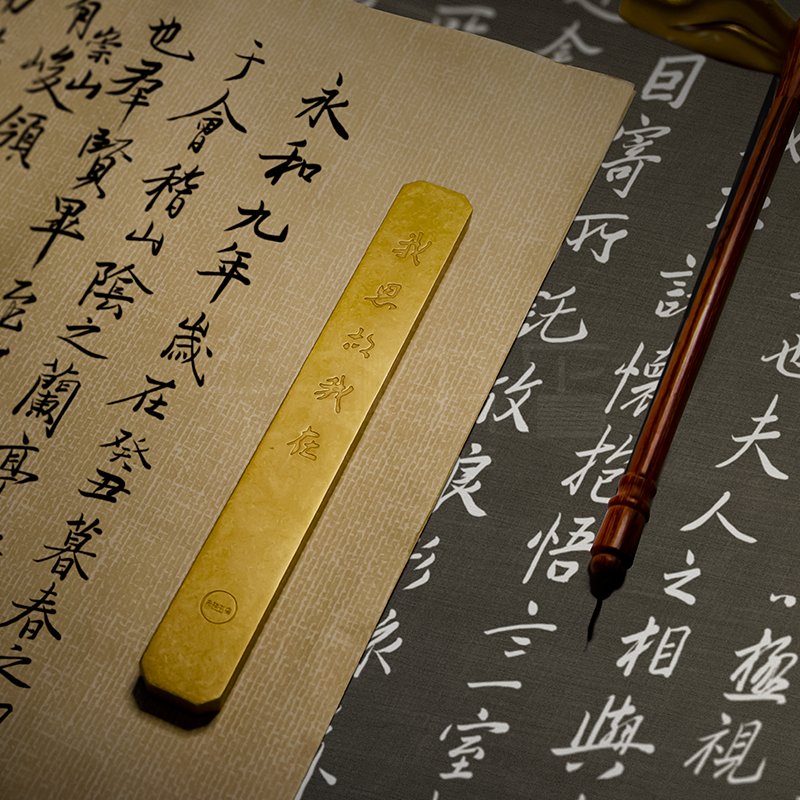 永和九年歲在癸丑暮春之
于會稽山陰之蘭亭
也羣賢畢至
有崇山峻領
我思故我在
也夫人之相與
懷抱悟言一室
因寄所託放
極視